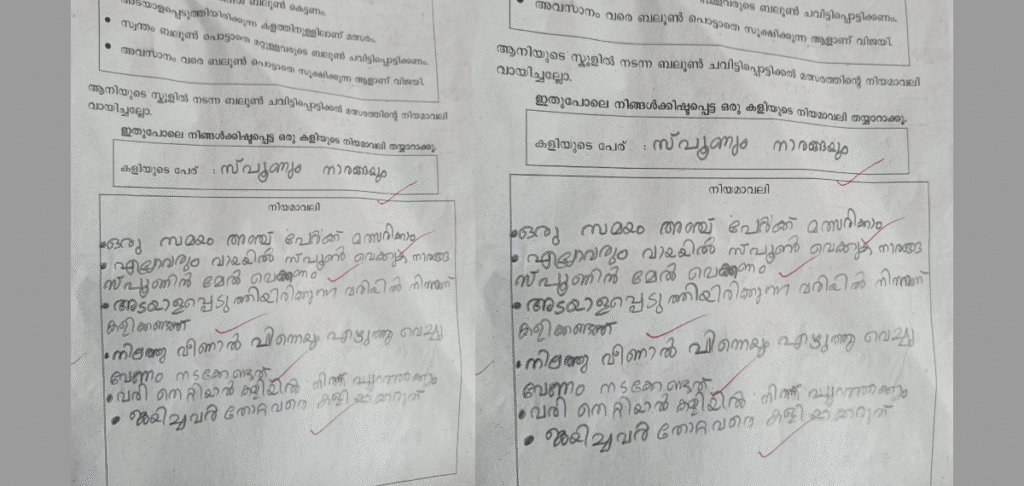 ബലൂൺ കെട്ടണം.
അടയാളപ്പെടുത്തിയിരിക്കുന്ന കളത്തിനുള്ളിലാണ് മത്സരം.
• സ്വന്തം ബലൂൺ പൊട്ടാതെ മറ്റുള്ളവരുടെ ബലൂൺ ചവിട്ടിപ്പൊട്ടിക്കണം.
• അവസാനം വരെ ബലൂൺ പൊട്ടാതെ സൂക്ഷിക്കുന്ന ആളാണ് വിജയി.
ആനിയുടെ സ്കൂളിൽ നടന്ന ബലൂൺ ചവിട്ടിപ്പൊട്ടിക്കൽ മത്സരത്തിന്റെ നിയമാവലി
വായിച്ചല്ലോ.
ഇതുപോലെ നിങ്ങൾക്കിഷ്ടപ്പെട്ട ഒരു കളിയുടെ നിയമാവലി തയ്യാറാക്കൂ.
കളിയുടെ പേര് : സ്പൂണും നാരങ്ങയും
നിയമാവലി
• ഒരു സമയം അഞ്ച് പേർക്ക് മത്സരിക്കാം
• എല്ലാവരും വായയിൽ സ്പൂൺ വെക്കുക നാരങ്ങ
സ്പൂണിൻ മേൽ വെക്കണം
• അടയാളപ്പെടുത്തിയിരിക്കുന്ന വരിയിൽ നിന്നാണ്
കളിക്കേണ്ടത്
• നിലത്തു വീണാൽ പിന്നെയും എടുത്തു വെച്ചു
വേണം നടക്കേണ്ടത്
• വരി തെറ്റിയാൽ കളിയിൽ നിന്ന് പുറത്താക്കും
• ജയിച്ചവർ തോറ്റവരെ കളിയാക്കരുത്
മറ്റുള്ളവരുടെ ബലൂൺ ചവിട്ടിപ്പൊട്ടിക്കണം.
• അവസാനം വരെ ബലൂൺ പൊട്ടാതെ സൂക്ഷിക്കുന്ന ആളാണ് വിജയി.
ആനിയുടെ സ്കൂളിൽ നടന്ന ബലൂൺ ചവിട്ടിപ്പൊട്ടിക്കൽ മത്സരത്തിന്റെ നിയമാവലി
വായിച്ചല്ലോ.
ഇതുപോലെ നിങ്ങൾക്കിഷ്ടപ്പെട്ട ഒരു കളിയുടെ നിയമാവലി തയ്യാറാക്കൂ.
കളിയുടെ പേര് : സ്പൂണും നാരങ്ങയും
നിയമാവലി
• ഒരു സമയം അഞ്ച് പേർക്ക് മത്സരിക്കാം
• എല്ലാവരും വായയിൽ സ്പൂൺ വെക്കുക നാരങ്ങ
സ്പൂണിൻ മേൽ വെക്കണം
• അടയാളപ്പെടുത്തിയിരിക്കുന്ന വരിയിൽ നിന്നാണ്
കളിക്കേണ്ടത്
• നിലത്തു വീണാൽ പിന്നെയും എടുത്തു വെച്ചു
വേണം നടക്കേണ്ടത്
• വരി തെറ്റിയാൽ കളിയിൽ നിന്ന് പുറത്താക്കും
• ജയിച്ചവർ തോറ്റവരെ കളിയാക്കരുത്